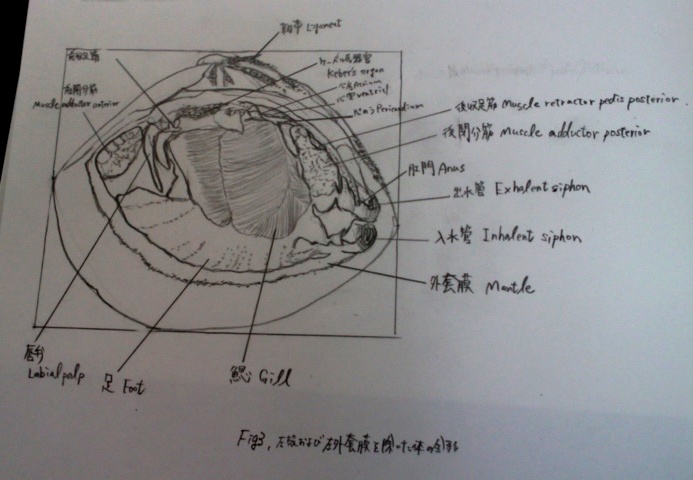 靭帯 Ligament
前収足筋
ケーベル氏器官
Keber's organ
心房 Atrium
心室 ventricl
前閉介筋
Muscle adductor anterior
Pericardium
後収足筋 Muscle retractor pedis posterior
後閉介筋 Muscle adductor posterior
肛門 Anus
出水管 Exhalent siphon
入水管 Inhalent siphon
外套膜 Mantle
唇弁
Labial palp
足 Foot
鰓 Gill
Fig3, 左殻および左外套膜を除いた体の全形